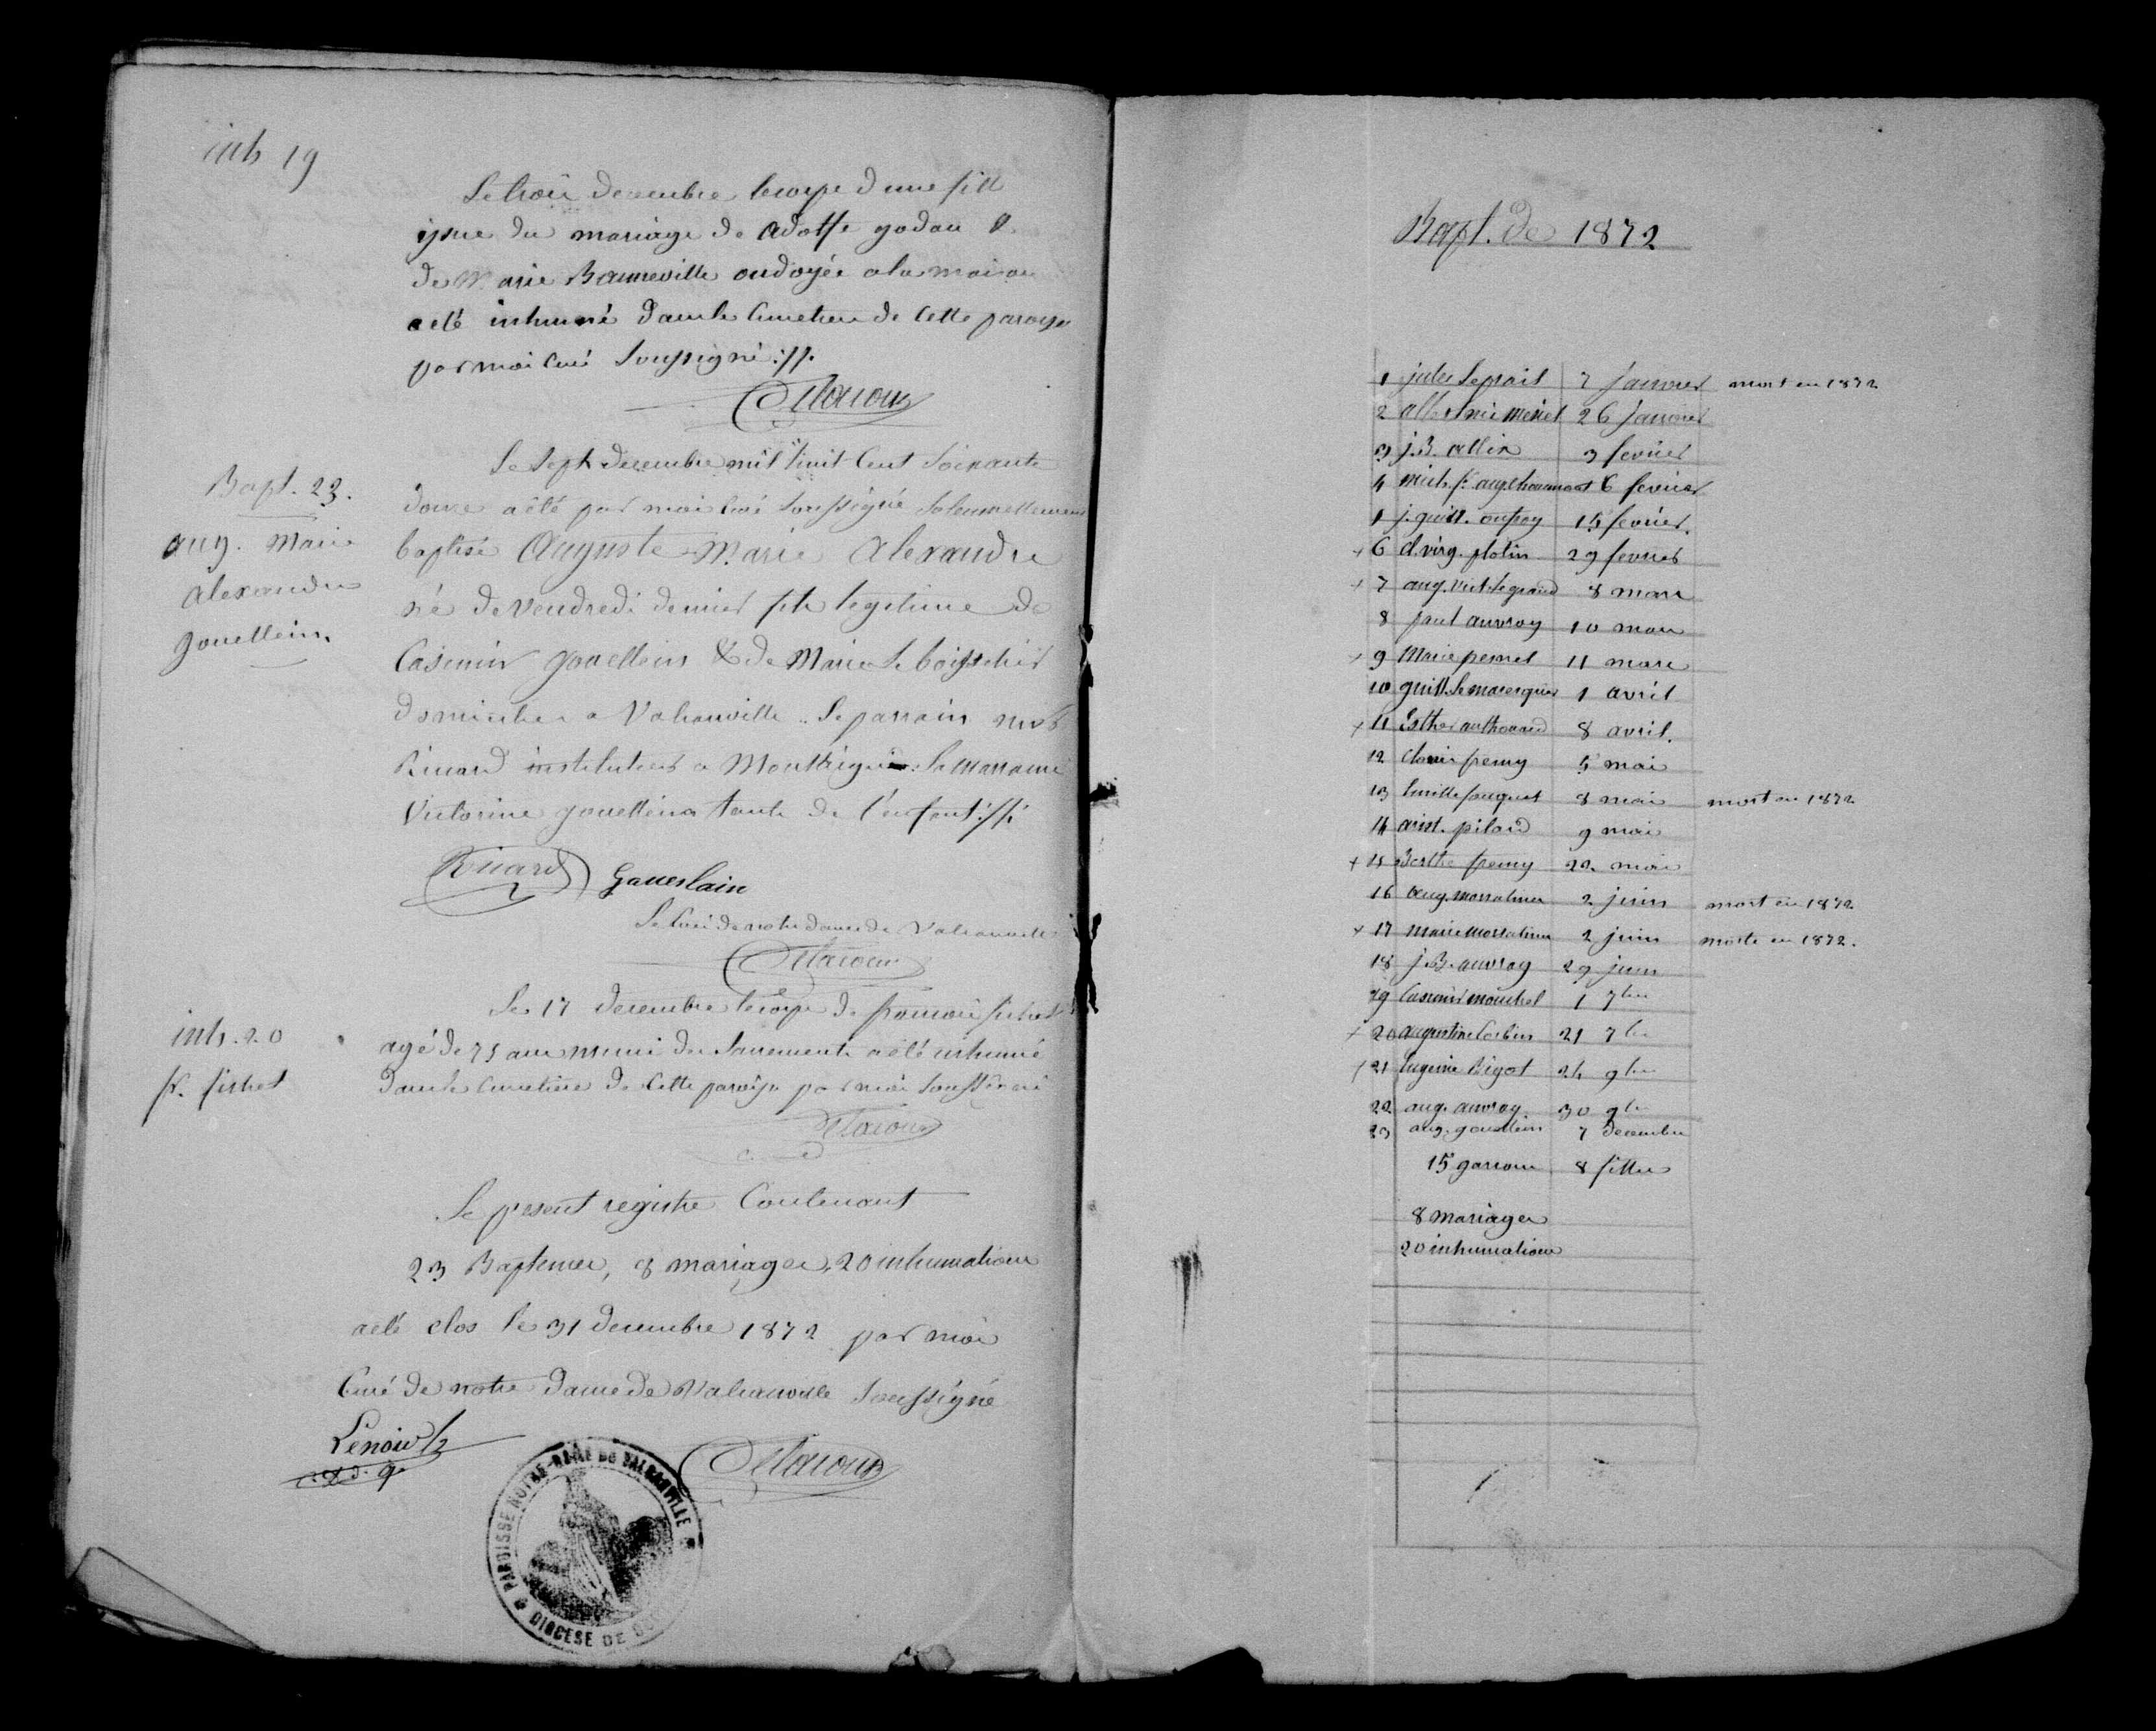 inh 19
Le trois decembre le corps d'une fille
issue du mariage de adolfe godou &
de Marie Banneville ondoyée a la maison
a été inhumé dans le cimetiere de cette paroisse
par moi curé soussigné ://.
Delacour
Bapt. 23.
aug. Marie
alexandre
gouellein
Le sept decembre mil huit cent soixante
douze a été par moi curé soussigné solennellement
baptisé Auguste Marie Alexandre
né de vendredi dernier fils legitime de
Casimir gouellein & de Marie Le boisselier
domiciliés a Valcanville. Le parrain
Ricard instituteur a la marraine
Victorine gouellein tante de l'enfant ://:
Ricard Goueslain
Le Curé de notre dame de Valcanville
Delacour
inh. 20
fr. fichet
Le 17 decembre le corps de francois fichet
agé de 75 ans muni des sacrements a été inhumé
dans le cimetière de cette paroisse par moi soussigné
Delacour
Le present registre Contenant
23 Baptemes, 8 mariages, 20 inhumations
a été clos le 31 decembre 1872 par moi
Curé de notre dame de Valcanville soussigné
Lenoir
Delacour
PAROISSE NOTRE-DAME DE VALCANVILLE
DIOCESE DE
Bapt. de 1872
1 jules Lepoit 7 janvier mort en 1872
2 26 janvier
3 j. B. allix 3 fevrier
4 6 fevrier
j. guill. 15 fevrier.
+ 6 cl. virg. plotin 29 fevrier
+ 7 aug. vict. Legrand 8 mars
8 paul auvray 10 mars
+ 9 Marie pesnel 11 mars
10 guill. Lemaresquier 1 avril
+ 11 Esther anthouard 8 avril.
12 fremy 5 mai
13 fouquet 8 mai mort en 1872
14 arist. pilard 9 mai
+ 15 Berthe fremy 22 mai
16 aug. morsalines 2 juin mort en 1872
+ 17 marie morsalines 2 juin morte en 1872.
18 j. B. auvray 29 juin
19 Casimir mouchel 1 7bre
+ 20 augustine Corbin 21 7bre
+ 21 Eugenie Bigot 24 9bre
22 aug. auvray. 30 9bre
23 aug. gouellein 7 decembre
15 garcons 8 filles
8 mariages
20 inhumations